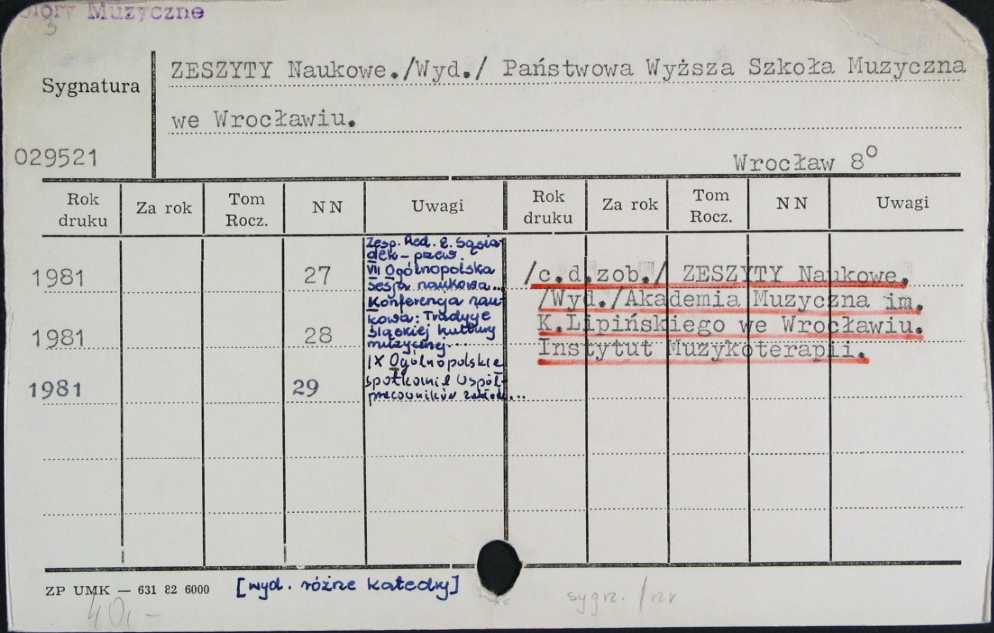 Zbiory Muzyczne
3
Sygnatura
ZESZYTY Naukowe./Wyd./ Państwowa Wyższa Szkoła Muzyczna
we Wrocławiu.
029521
Wrocław 8º
Rok druku Za rok Tom Rocz. NN Uwagi Rok druku Za rok Tom Rocz. NN Uwagi
1981 27
Zesp. Red. E. Sąsia-
dek - przew.
VII Ogólnopolska
sesja naukowa...
1981 28
Konferencja nau-
kowa: Tradycje
śląskiej kultury
muzycznej...
1981 29
IX Ogólnopolskie
spotkanie współ-
pracowników
/c.d.zob./ ZESZYTY Naukowe.
/Wyd./Akademia Muzyczna im.
K.Lipińskiego we Wrocławiu.
Instytut Muzykoterapii.
ZP UMK — 631 82 6000
[wyd. różne katedry]
40,-